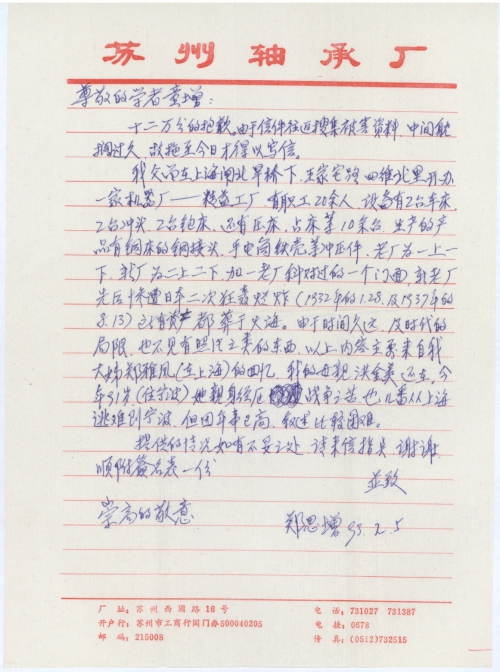 苏州轴承厂
尊敬的学者童增：
十二万分的抱歉。由于信件往返搜集被害资料 中间耽
搁过久 故拖至今日才得以写信。
我父亲在上海闸北旱桥下，王家宅路 四维北里开办
一家机器厂——精益工厂 有职工20余人，设备有2台车床，
2台冲头，2台铇床，还有压床，占床等10余台，生产的产
品有铜床的铜接头，手电筒铁壳等冲压件，老厂为一上一
下，新厂为二上二下，加一老厂斜对过的一个门面，新老厂
先后于来遭日本二次狂轰烂炸（1932年的1.28，及1937年的
8.13）所有资产都葬于火海。由于时间久远，及时代的
局限，也不见有照片之类的东西，以上内容主要来自我
大姊郑雅凤（在上海）的回忆，我的母亲洪金美还在，今
年91岁（住宁波）她亲身经历战争之苦，也几番从上海
逃难到宁波，但因年事已高，叙述比较困难。
提供的情况如有不妥之处，请来信指点，谢谢，
顺附签名表一份
并致
崇高的敬意
郑思增 93.2.5
厂 址：苏州西园路16号 电 话：731027 731387
开户行：苏州市工商行阊门办500040205 电 挂：0678
邮 码：215008 传 真：(0512)732515